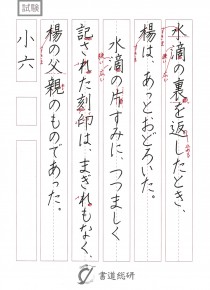 試験
水滴の裏を返したとき、
楊は、あっとおどろいた。
水滴の片すみに、つつましく
記された刻印は、まぎれもなく、
楊の父親のものであった。
小六
書道総研